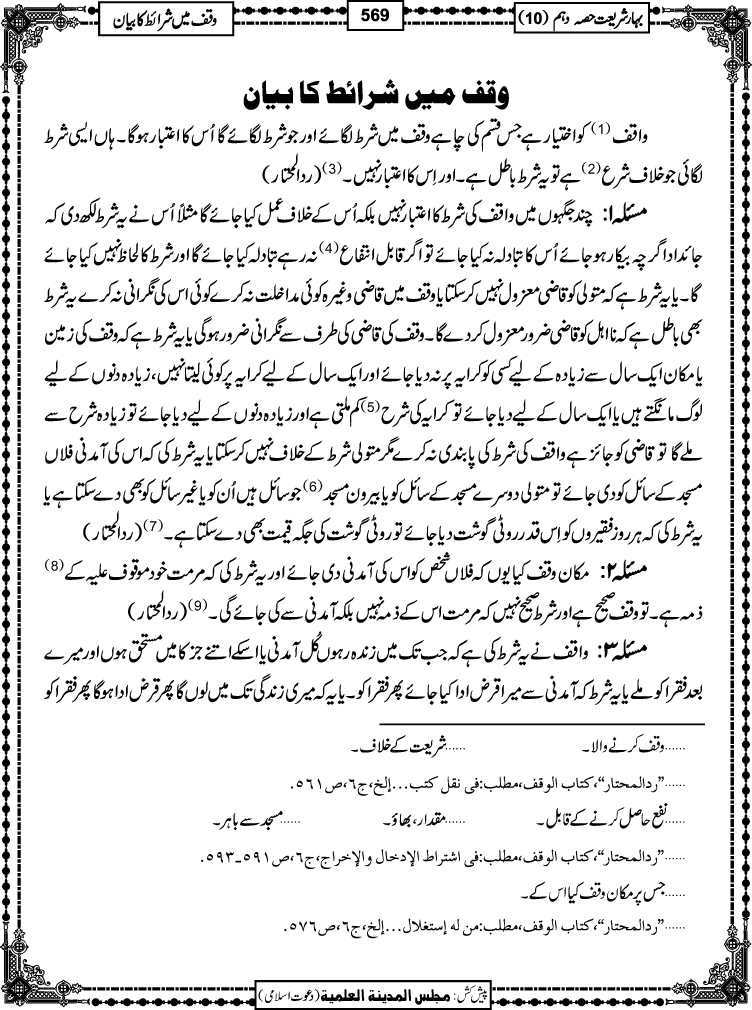 بہارِ شریعت حصہ دہم (10)
569
وقف میں شرائط کا بیان
وقف میں شرائط کا بیان
واقف (1) کو اختیار ہے جس قسم کی چاہے وقف میں شرط لگائے اور جو شرط لگائے گا اُس کا اعتبار ہوگا۔ ہاں ایسی شرط
لگائی جو خلاف شرع (2) ہے تو یہ شرط باطل ہے۔ اور اِس کا اعتبار نہیں۔ (3) (ردالمحتار)
مسئلہ ۱: چند جگہوں میں واقف کی شرط کا اعتبار نہیں بلکہ اُس کے خلاف عمل کیا جائے گا مثلاً اُس نے یہ شرط لکھ دی کہ
جائداد اگرچہ بیکار ہو جائے اُس کا تبادلہ نہ کیا جائے تو اگر قابل انتفاع (4) نہ رہے تبادلہ کیا جائے گا اور شرط کا لحاظ نہیں کیا جائے
گا۔ یا یہ شرط ہے کہ متولی کو قاضی معزول نہیں کرسکتا یا وقف میں قاضی وغیرہ کوئی مداخلت نہ کرے کوئی اس کی نگرانی نہ کرے یہ شرط
بھی باطل ہے کہ نا اہل کو قاضی ضرور معزول کر دے گا۔ وقف کی قاضی کی طرف سے نگرانی ضرور ہوگی یا یہ شرط ہے کہ وقف کی زمین
یا مکان ایک سال سے زیادہ کے لیے کسی کو کرایہ پر نہ دیا جائے اور ایک سال کے لیے کرایہ پر کوئی لیتا نہیں، زیادہ دنوں کے لیے
لوگ مانگتے ہیں یا ایک سال کے لیے دیا جائے تو کرایہ کی شرح (5) کم ملتی ہے اور زیادہ دنوں کے لیے دیا جائے تو زیادہ شرح سے
ملے گا تو قاضی کو جائز ہے واقف کی شرط کی پابندی نہ کرے مگر متولی شرط کے خلاف نہیں کرسکتا یا یہ شرط کی کہ اس کی آمدنی فلاں
مسجد کے سائل کو دی جائے تو متولی دوسرے مسجد کے سائل کو یا بیرون مسجد (6) جو سائل ہیں اُن کو یا غیر سائل کو بھی دے سکتا ہے یا
یہ شرط کی کہ ہر روز فقیروں کو اِس قدر روٹی گوشت دیا جائے تو روٹی گوشت کی جگہ قیمت بھی دے سکتا ہے۔ (7) (ردالمحتار)
مسئلہ ۲: مکان وقف کیا یوں کہ فلاں شخص کو اس کی آمدنی دی جائے اور یہ شرط کی کہ مرمت خود موقوف علیہ کے (8)
ذمہ ہے۔ تو وقف صحیح ہے اور شرط صحیح نہیں کہ مرمت اس کے ذمہ نہیں بلکہ آمدنی سے کی جائے گی۔ (9) (ردالمحتار)
مسئلہ ۳: واقف نے یہ شرط کی ہے کہ جب تک میں زندہ رہوں کُل آمدنی یا اسکے اتنے جز کا میں مستحق ہوں اور میرے
بعد فقرا کو ملے یا یہ شرط کہ آمدنی سے میرا قرض ادا کیا جائے پھر فقرا کو۔ یا یہ کہ میری زندگی تک میں لوں گا پھر قرض ادا ہوگا پھر فقرا کو
......وقف کرنے والا۔ ......شریعت کے خلاف۔
......"ردالمحتار"، کتاب الوقف، مطلب: فی نقل کتب...إلخ، ج٦، ص٥٦١.
......نفع حاصل کرنے کے قابل۔ ......مقدار، بھاؤ۔ ......مسجد سے باہر۔
......"ردالمحتار"، کتاب الوقف، مطلب: فی اشتراط الإدخال والإخراج، ج٦، ص٥٩١-٥٩٣.
......جس پر مکان وقف کیا اس کے۔
......"ردالمحتار"، کتاب الوقف، مطلب: من له إستغلال...إلخ، ج٦، ص٥٧٦.
پیش کش: مجلس المدینۃ العلمیۃ (دعوت اسلامی)